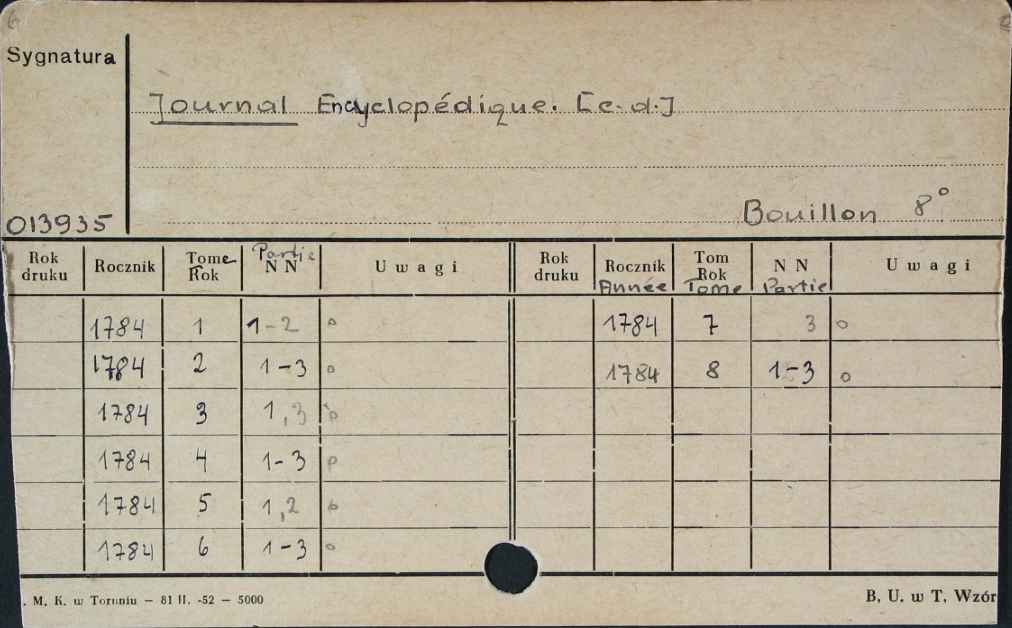 Sygnatura
Journal Encyclopédique. [c. d.]
013935
Bouillon 8°
Rok druku | Rocznik | Tome Rok | Partie N N | Uwagi | Rok druku | Rocznik Année | Tom Rok Tome | N N Partie | Uwagi
1784 | 1 | 1-2 | o | 1784 | 7 | 3 | o
1784 | 2 | 1-3 | o | 1784 | 8 | 1-3 | o
1784 | 3 | 1,3
1784 | 4 | 1-3
1784 | 5 | 1,2
1784 | 6 | 1-3 | o
. M. K. w Toruniu — 81 II. -52 — 5000
B. U. w T. Wzór